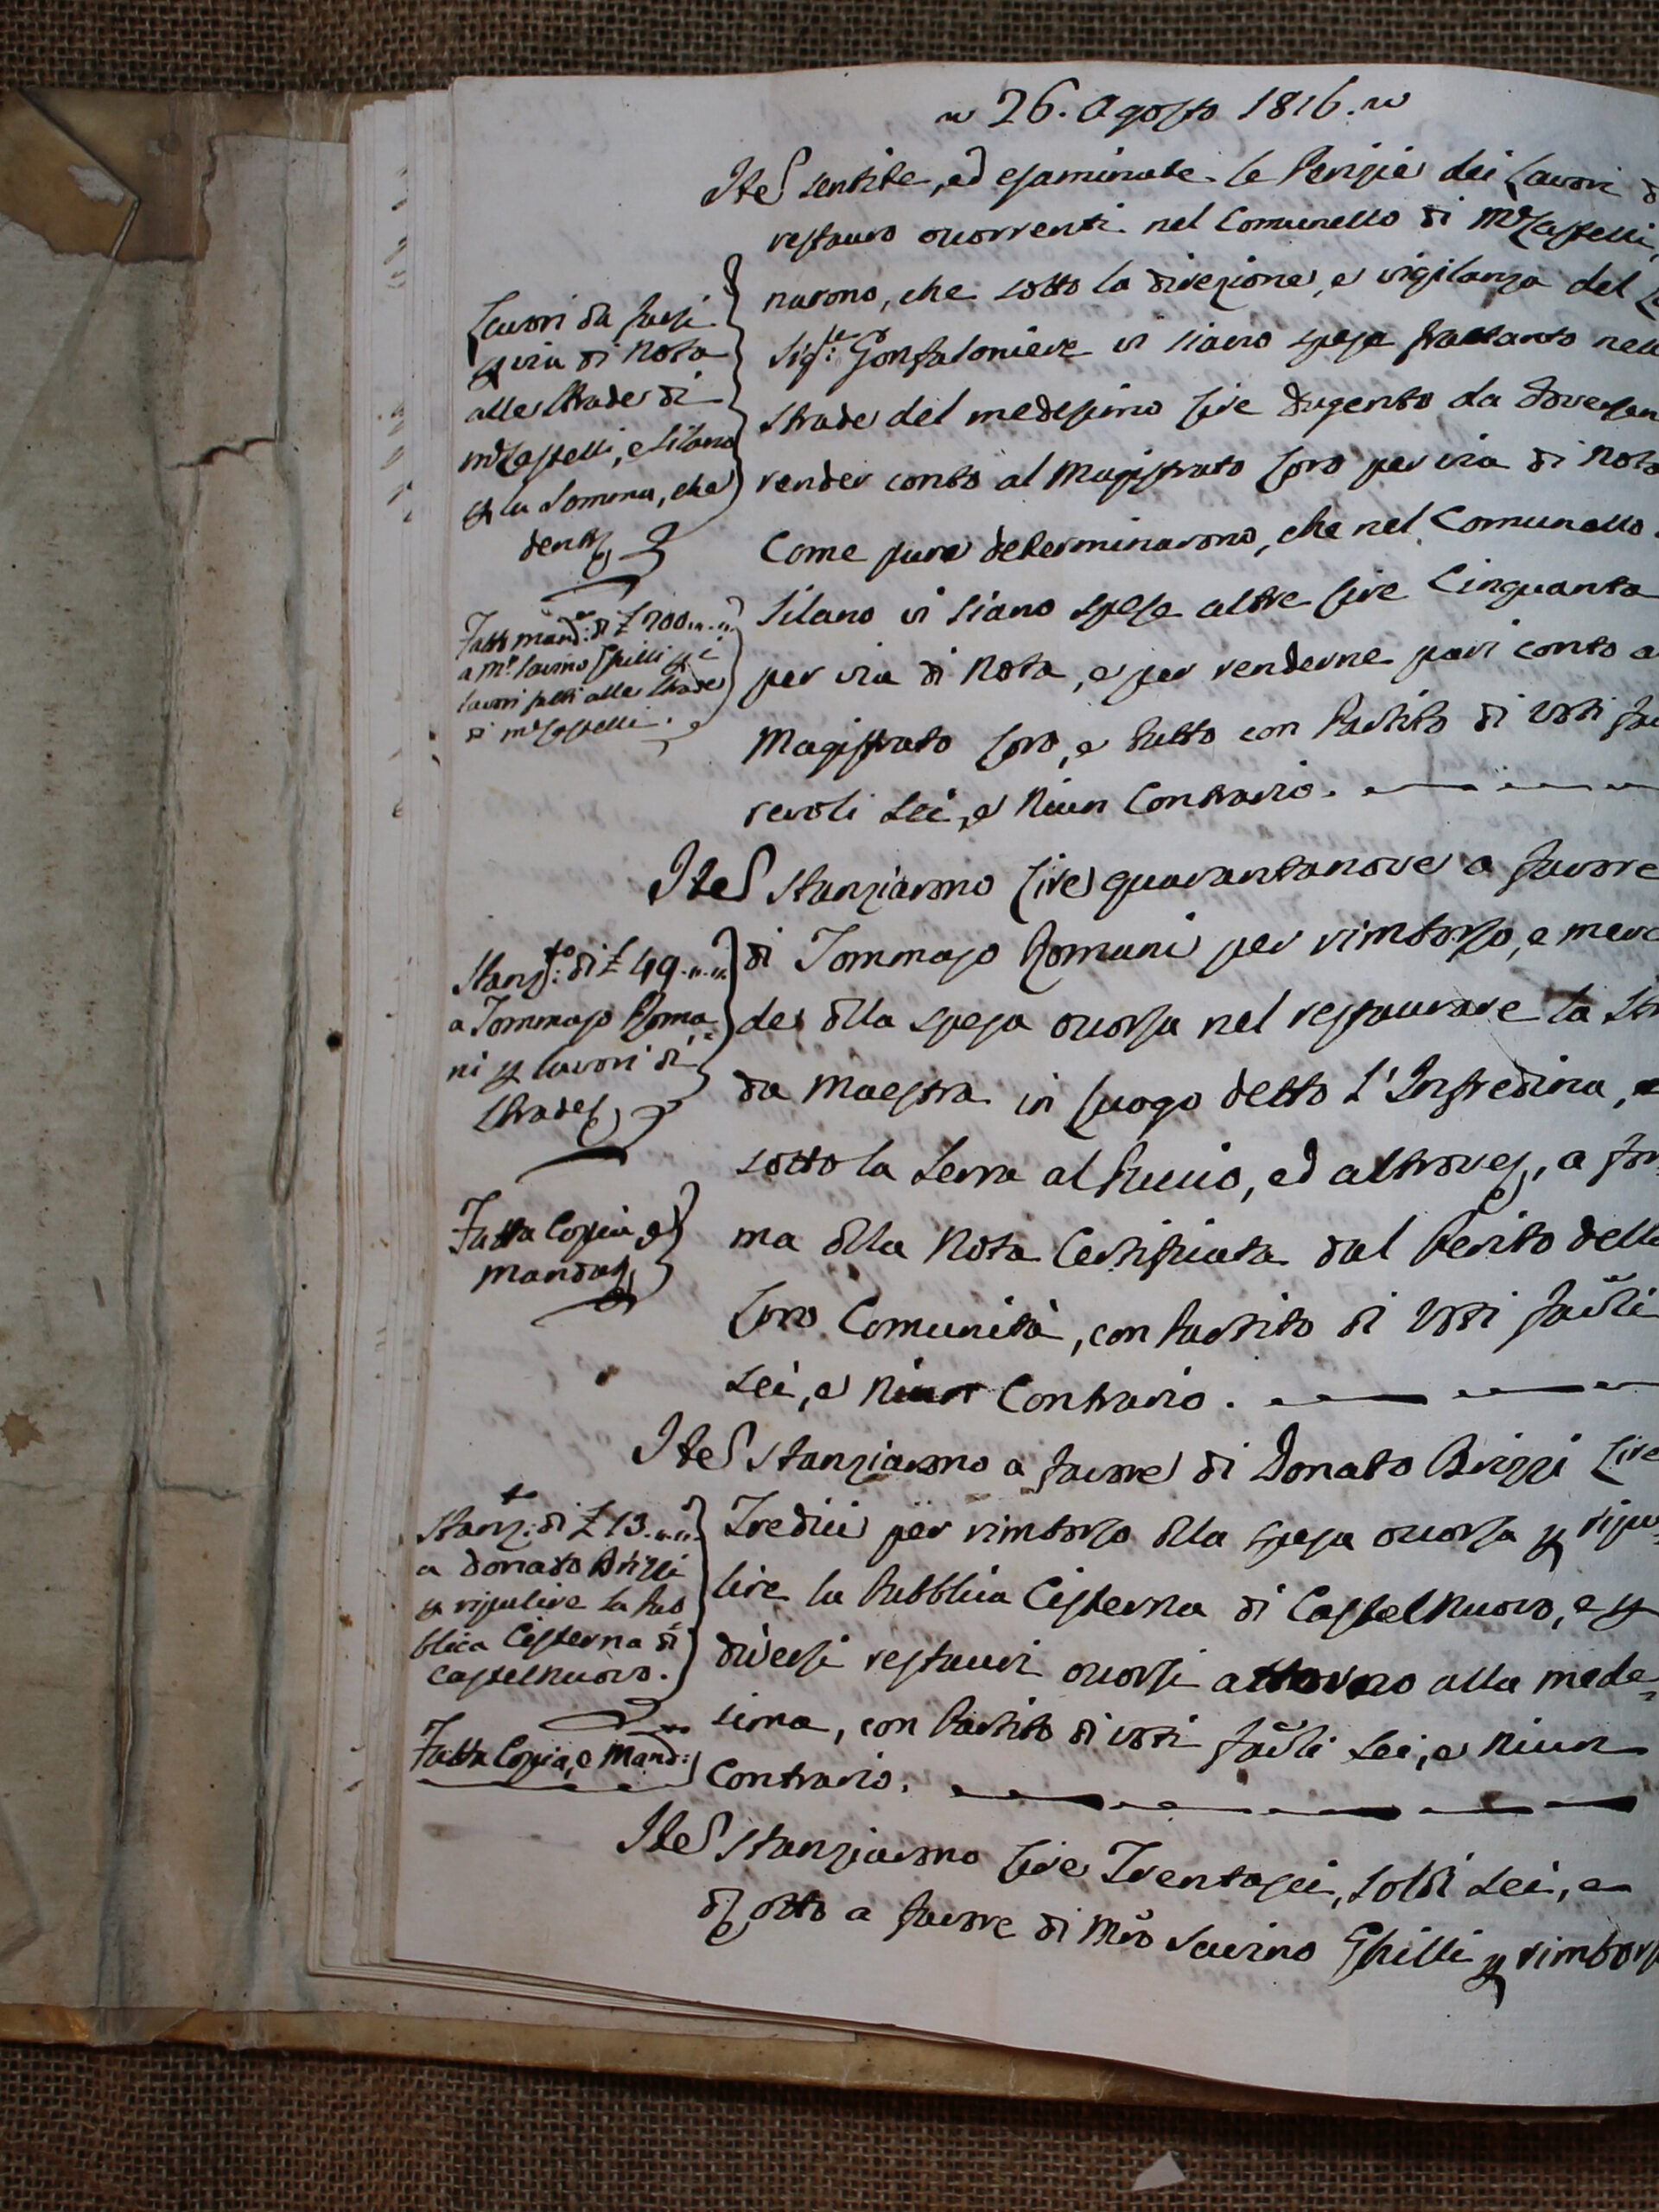 26. Agosto 1816.
Ite sentite, ed esaminate le Perizie dei Lavori d
restauro occorrenti nel Comunello di M. Castelli,
narono, che sotto la direzione, e vigilanza del
Sig.re Gonfaloniere vi siano spese frattanto nell
Strade del medesimo Lire Dugento da doversen
render conto al Magistrato Loro per via di Nota
Come pure determinarono, che nel Comunello
Silano vi siano spese altre Lire Cinquanta
per via di Nota, e per renderne pari conto a
Magistrato Loro, e tutto con Partito di Voti fa
revoli Sei, e Niun Contrario.
Lavori da farsi
p via di Nota
alle Strade di
M. Castelli, e Silano
p la Somma, che
dent
Fatto mand: di £ 200
a M. Savino Ghilli p i
lavori fatti alle Strade
di M. Castelli.
Ite Stanziarono Lire quarantanove a favore
di Tommaso Romani per rimborso, e merc
de della spesa occorsa nel restaurare la Str
da Maestra in luogo detto L'Infredina, e
sotto la Serra al Fucio, ed altrove, a for
ma della Nota Certificata dal Perito dell
Loro Comunità, con Partito di Voti favoli
Sei, e Niun Contrario.
Stanz.to di £ 49
a Tommaso Roma
ni p lavori di
Strade
Fatta Copia e
mandato
Ite Stanziarono a favore di Donato Brizzi Lire
Tredici per rimborso della spesa occorsa p ripu
lire la Pubblica Cisterna di Castelnuovo, e p
diversi restauri occorsi attorno alla mede
sima, con Partito di voti favoli Sei, e Niun
Contrario.
Stanz.to di £ 13
a Donato Brizzi
p ripulire la Pub
blica Cisterna di
Castelnuovo.
Fatta Copia, e Mand:
Ite Stanziarono Lire Trentasei, soldi Sei, e
d otto a favore di Mro Savino Ghilli p rimbors